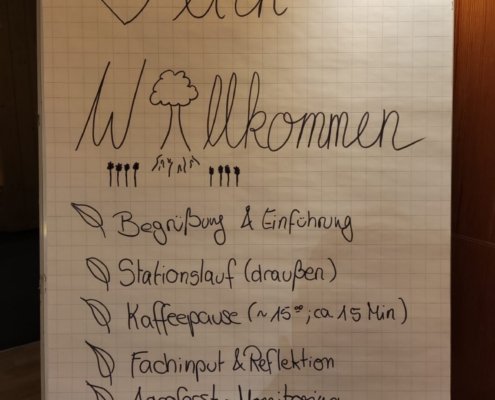 Willkommen
Begrüßung & Einführung
Stationslauf (draußen)
Kaffeepause (~15⁰⁰; ca. 15 Min)
Fachinput & Reflektion